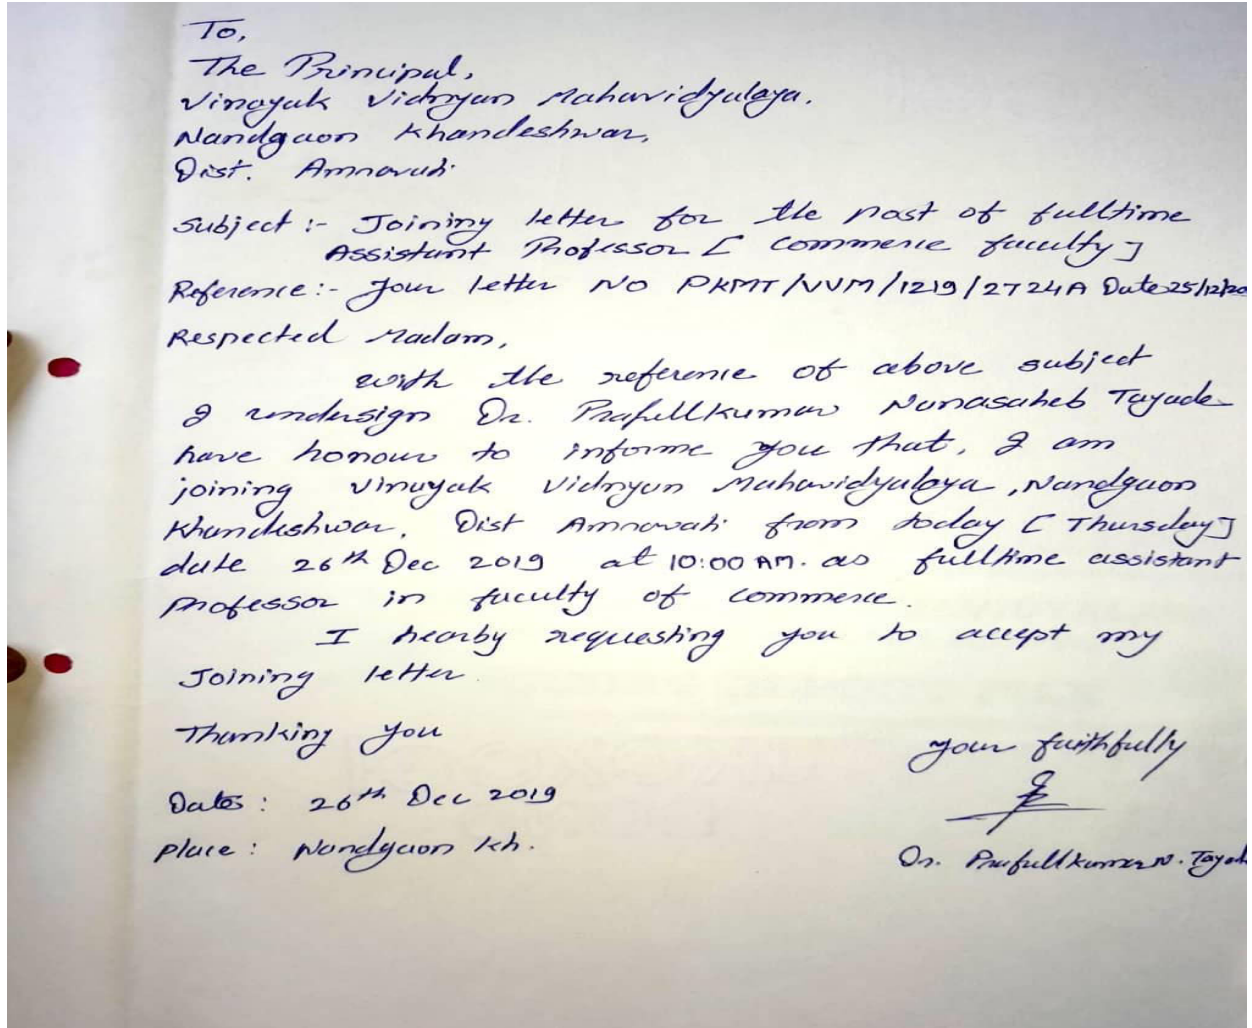 To,
The Principal,
Vinayak Vidnyan Mahavidyalaya.
Nandgaon Khandeshwar,
Dist. Amravati.
Subject :- Joining letter for the post of fulltime
Assistant Professor [ Commerce faculty ]
Reference :- Your letter No PKMT/VVM/1219/2724A Date 25/12/20
Respected Madam,
With the reference of above subject
I undersign Dr. Prafullkumar Nanasaheb Tayade
have honour to informe you that, I am
joining Vinayak Vidnyan Mahavidyalaya, Nandgaon
Khandeshwar, Dist Amravati from today [ Thursday ]
date 26th Dec 2019 at 10:00 AM. as fulltime assistant
Professor in faculty of commerce.
I hearby requesting you to accept my
Joining letter.
Thanking you
your faithfully
Date : 26th Dec 2019
Place : Nandgaon Kh.
Dr. Prafullkumar N. Tayade